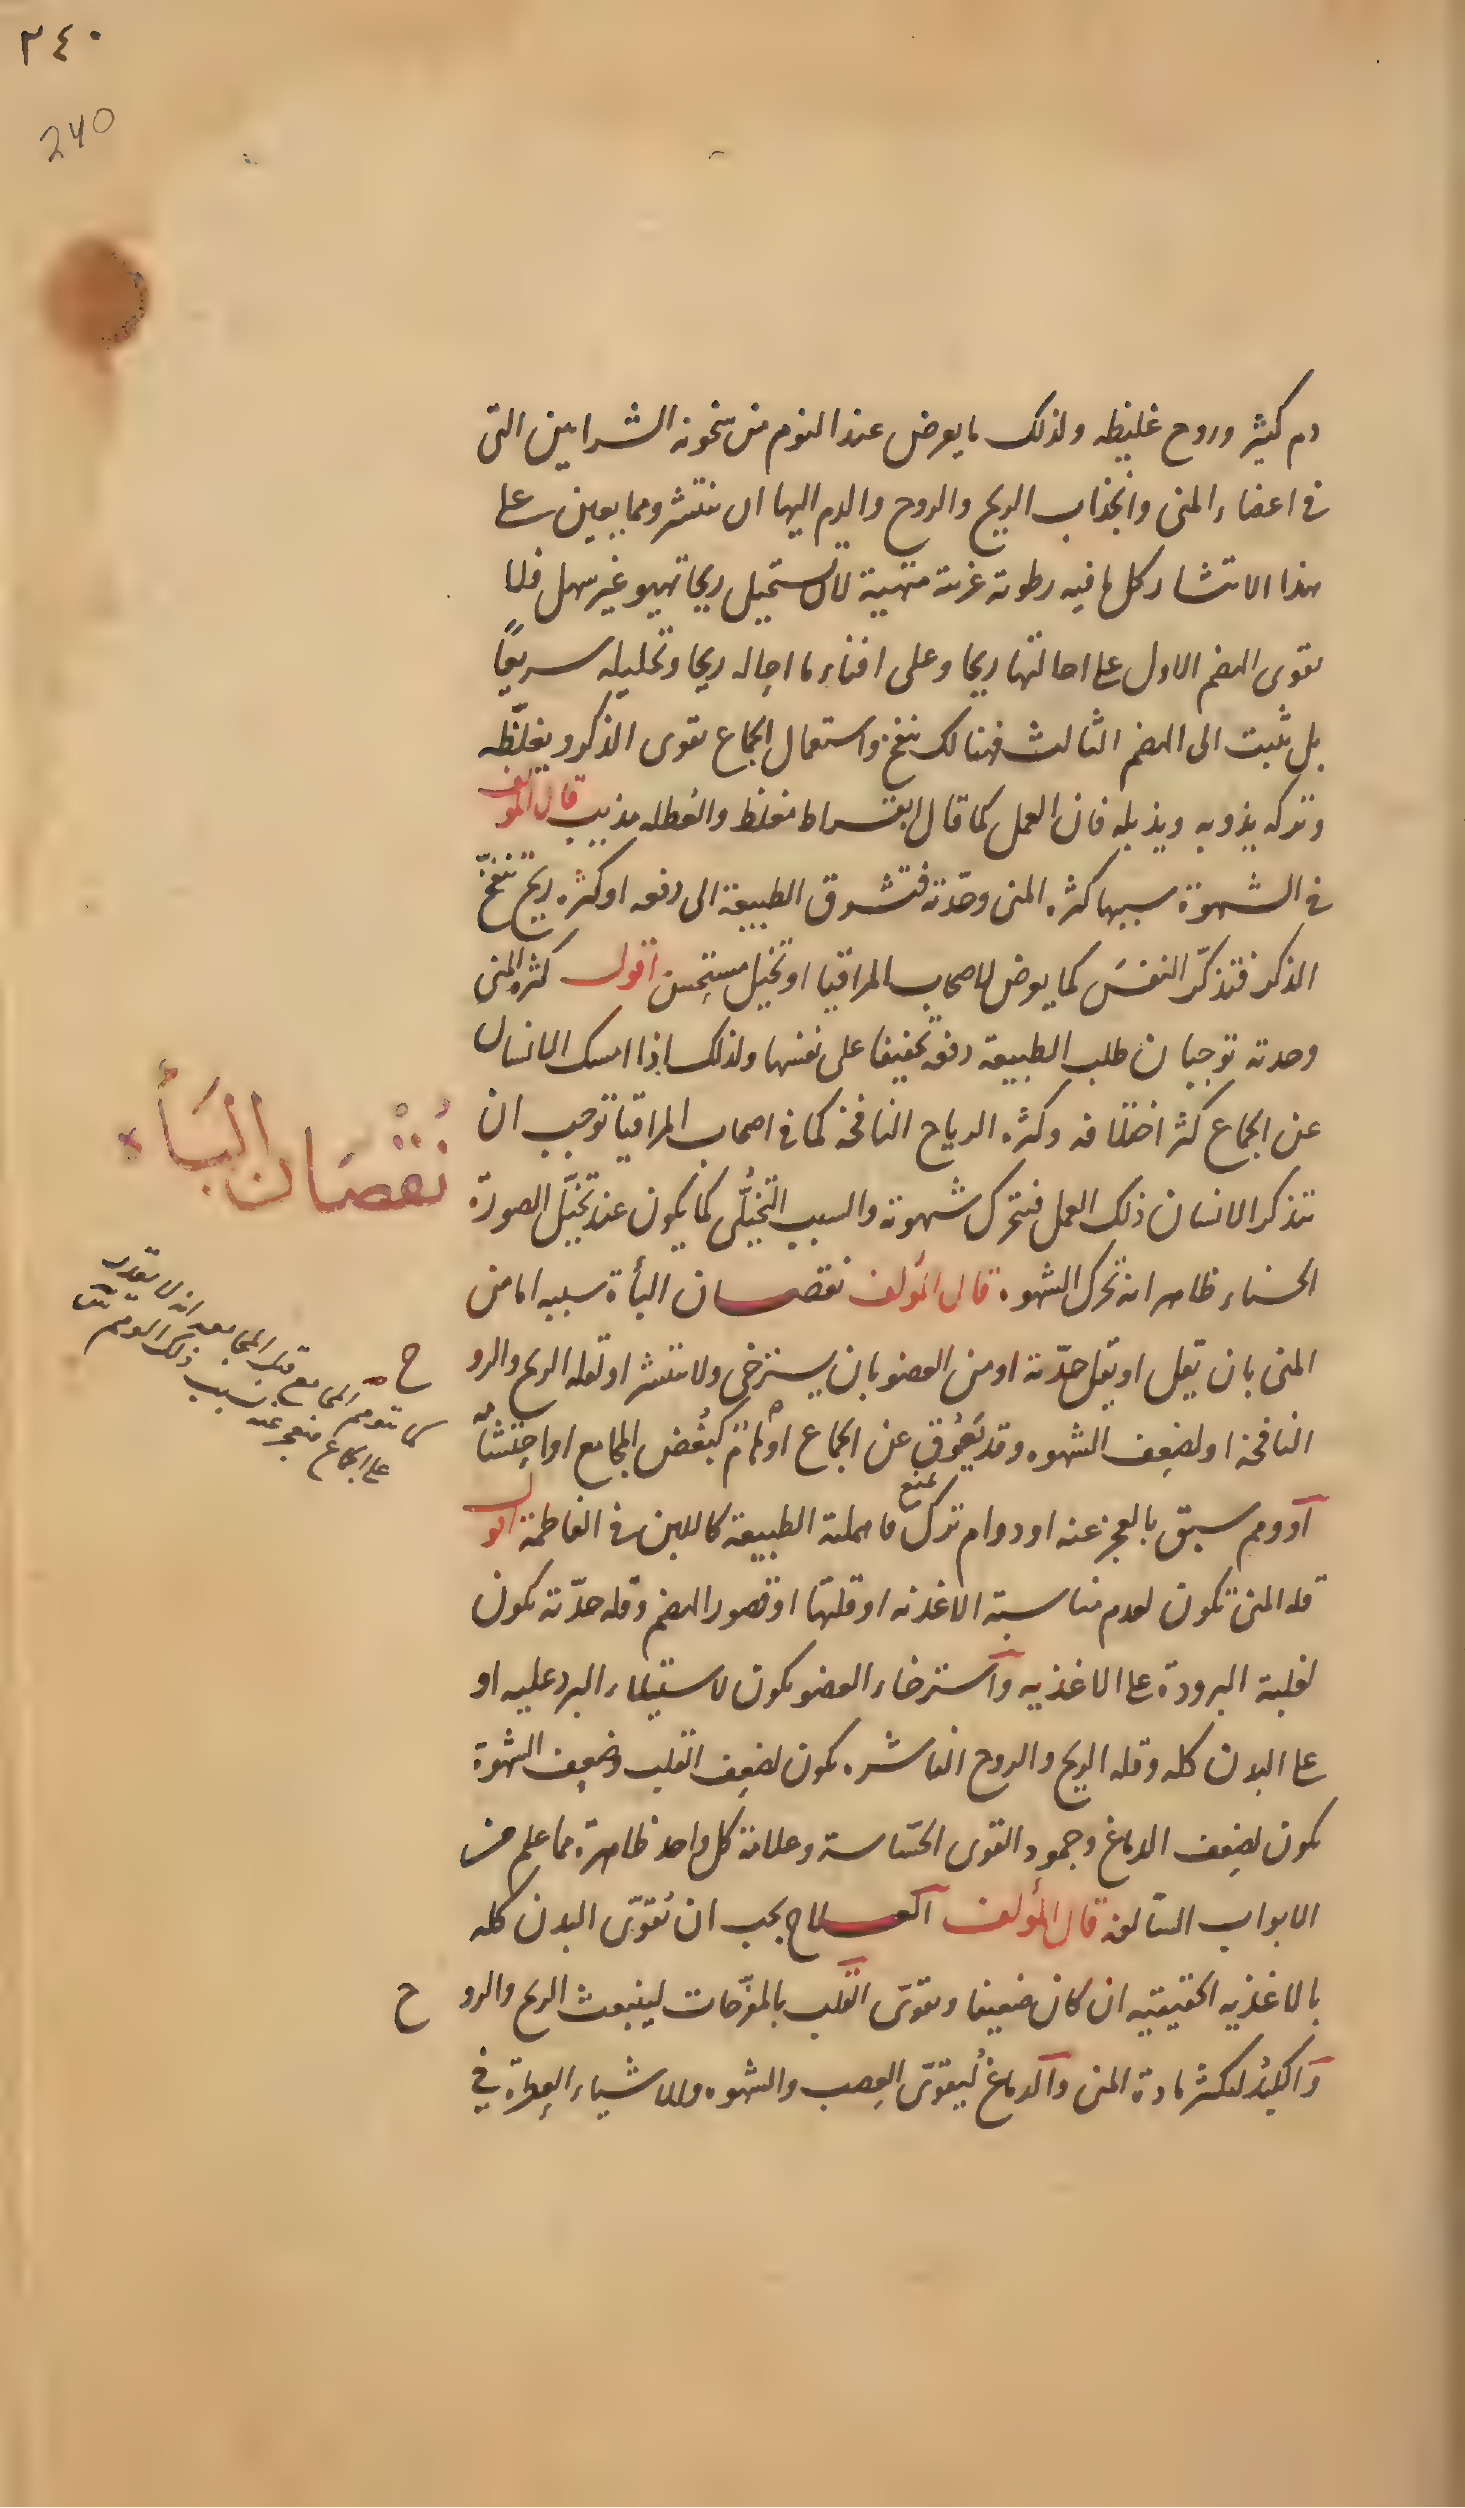 ٢٤٠
240
دم كثير وروح غليظه ولذلك ما يعرض عند النوم من سخونه الشرايين التى
فى اعضاء المنى وانجذاب الريح والروح والدم اليها ان ينتشر ومما يعين على
هذا الانتشار كل ما فيه رطوبة غريبة متهيئة لان تستحيل ريحا تهيو غير سهل فلا
يقوى الهضم الاول على احالتها ريحا وعلى افناء ما احاله ريحا وتحليله سريعًا
بل يثبت الى الهضم الثالث فهنالك ينفخ واستعمال الجماع يقوى الذكر ويغلّظه
وتركه يذوبه ويذبله فان العمل كما قال ابقراط مغلظ والعطله مذيب قال المؤلف
فى الشهوة سببها كثرة المنى وحدّته فتشوق الطبيعة الى دفعه او كثرة ريح تنفخ
الذكر فتذكّر النفسَ كما يعرض لاصحاب المراقيا او تخيل مستحسن اقول كثرة المنى
وحدته توجبان طلب الطبيعة دفعه تخفيفا على نفسها ولذلك اذا امسك الانسان
عن الجماع كثر احتلامه وكثرة الرياح النافخة كما فى اصحاب المراقيا توجب ان
يتذكر الانسان ذلك العمل فتحرك شهوته والسبب التخيُّلى كما يكون عند تخيّل الصورة
الحسناء ظاهر انه تحرك الشهوة قال المؤلف نقصان البأة سببه اما من
المنى بان يقل او يقل حدّته او من العضو بان يسترخى ولا ينتشر او لقله الريح والرو
ح
النافخة او لضعف الشهوه وقد يَعُوق عن الجماع اوهام كبُغض المجامع او احتشامه
او وهم سبق بالعجز عنه او دوام ترك فاهملته الطبيعة كاللبن فى الفاطمة اقول
قله المنى تكون لعدم مناسبة الاغذيه او قلتها او قصور الهضم وقله حدّته تكون
لغلبة البرودة على الاغذيه واسترخاء العضو يكون لاستيلاء البرد عليه او
على البدن كله وقله الريح والروح الناشره يكون لضعف القلب وضعف الشهوة
يكون لضعف الدماغ وجمود القوى الحسّاسة وعلامة كل واحد ظاهرة مما علم من
الابواب السالفه قال المؤلف العلاج يجب ان يُقوّى البدن كله
بالاغذيه الحقيقيه ان كان ضعيفا ويقوّى القلب بالمفرّحات لينبعث الريح والرو
ح
والكبدُ لتكثر مادة المنى والدماغ ليُقوّى العصب والشهوه والاشياء العطرة فى
نُقْصَان البَأَة
كما يتوهم المجامع قبل المجامعه انه لا يقدر
على الجماع فيعجز عنه بسبب ذلك الوهم